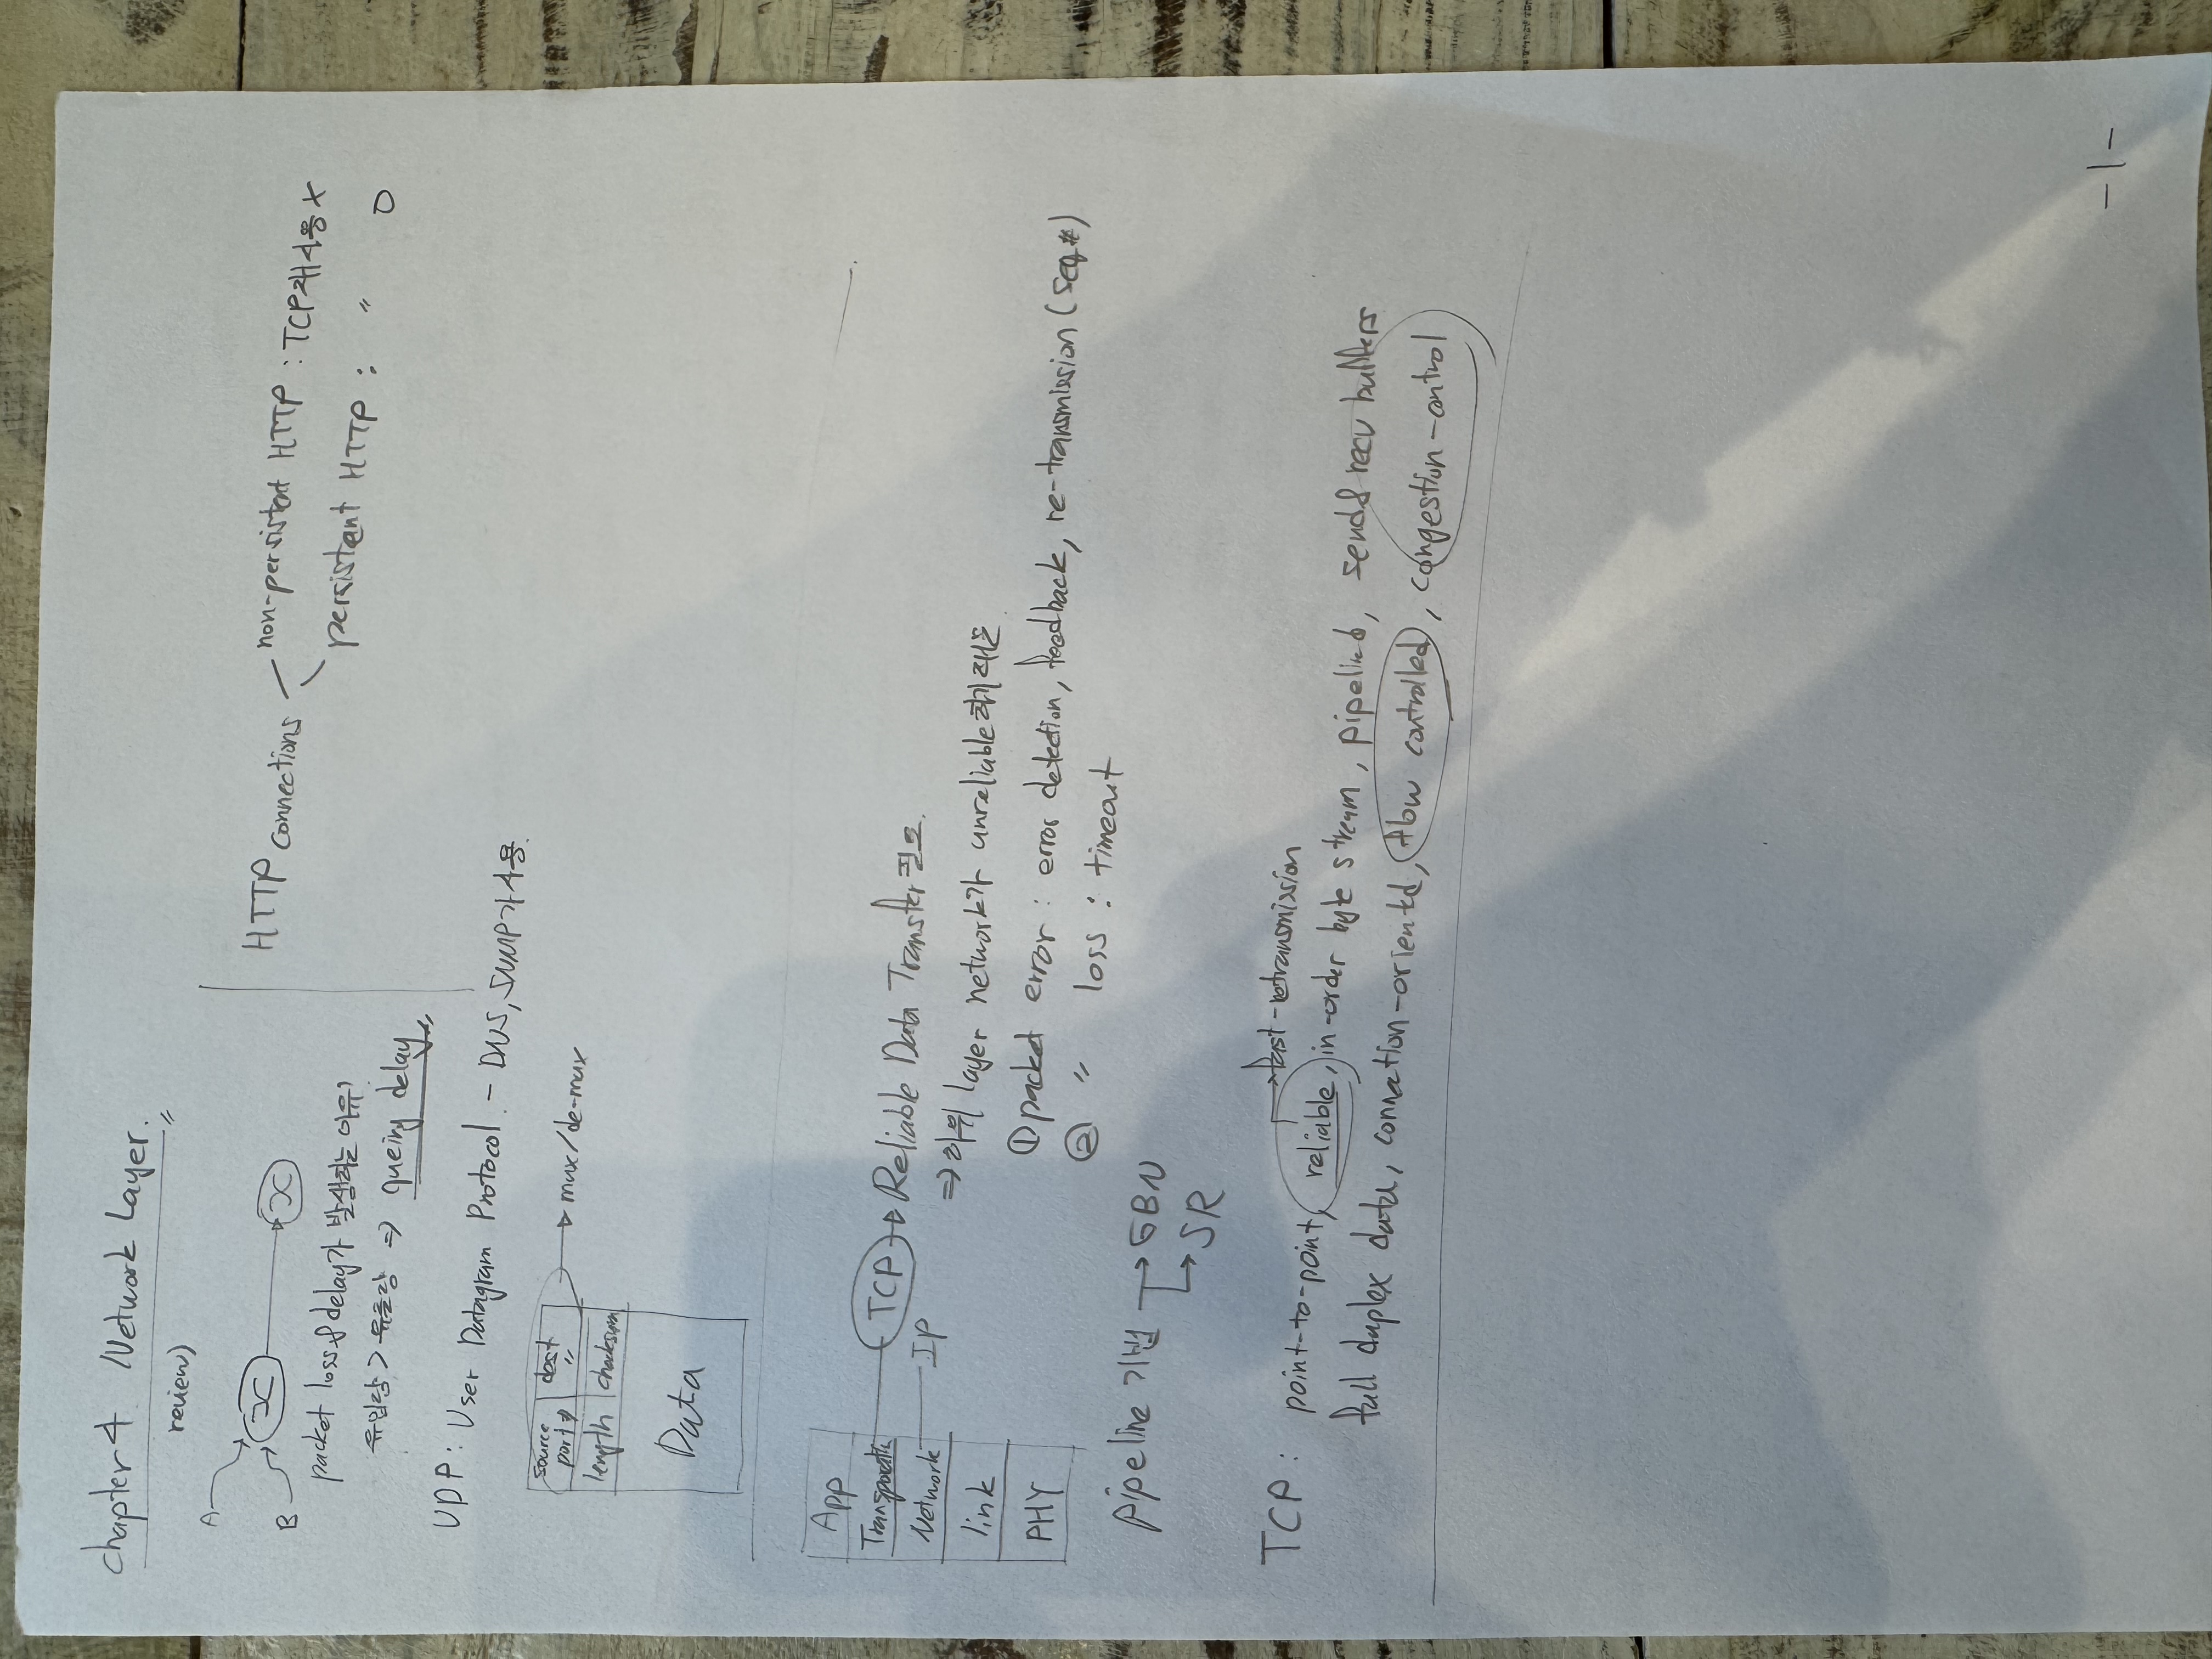 chapter 4. Network Layer.
review)
A
B
packet loss & delay가 발생하는 이유?
유입량 > 유출량 ⇒ queing delay
HTTP connections
non-persistent HTTP : TCP재사용 X
persistent HTTP : 〃 O
UDP : User Datagram Protocol - DNS, SNMP가 사용.
source port# dest 〃
→ mux/de-mux
length checksum
Data
App
Network
link
PHY
IP
TCP → Reliable Data Transfer 필요.
⇒ 하위 layer network가 unreliable하기 때문
① packet error : error detection, feedback, re-transmission (seq #)
② 〃 loss : timeout
pipeline 기법 → GBN
→ SR
→ fast-retransmission
TCP : point-to-point, reliable, in-order byte stream, pipelined, send & recv buffers
full duplex data, flow controlled, congestion-control
-1-